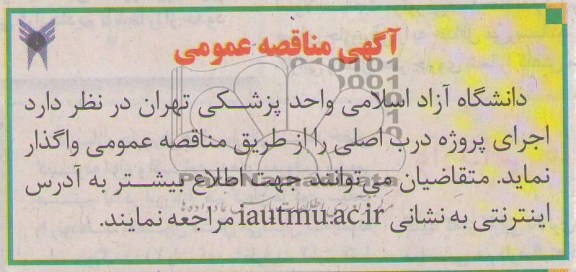 آگهی مناقصه عمومی
دانشگاه آزاد اسلامی واحد پزشکی تهران در نظر دارد
اجرای پروژه درب اصلی را از طریق مناقصه عمومی واگذار
نماید. متقاضیان می‌توانند جهت اطلاع بیشتر به آدرس
اینترنتی به نشانی iautmu.ac.ir مراجعه نمایند.